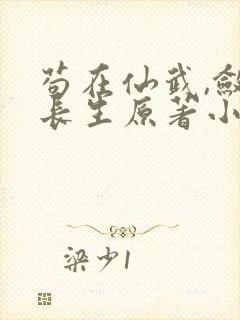 苟在仙武,斂
長生原著小
梁少1